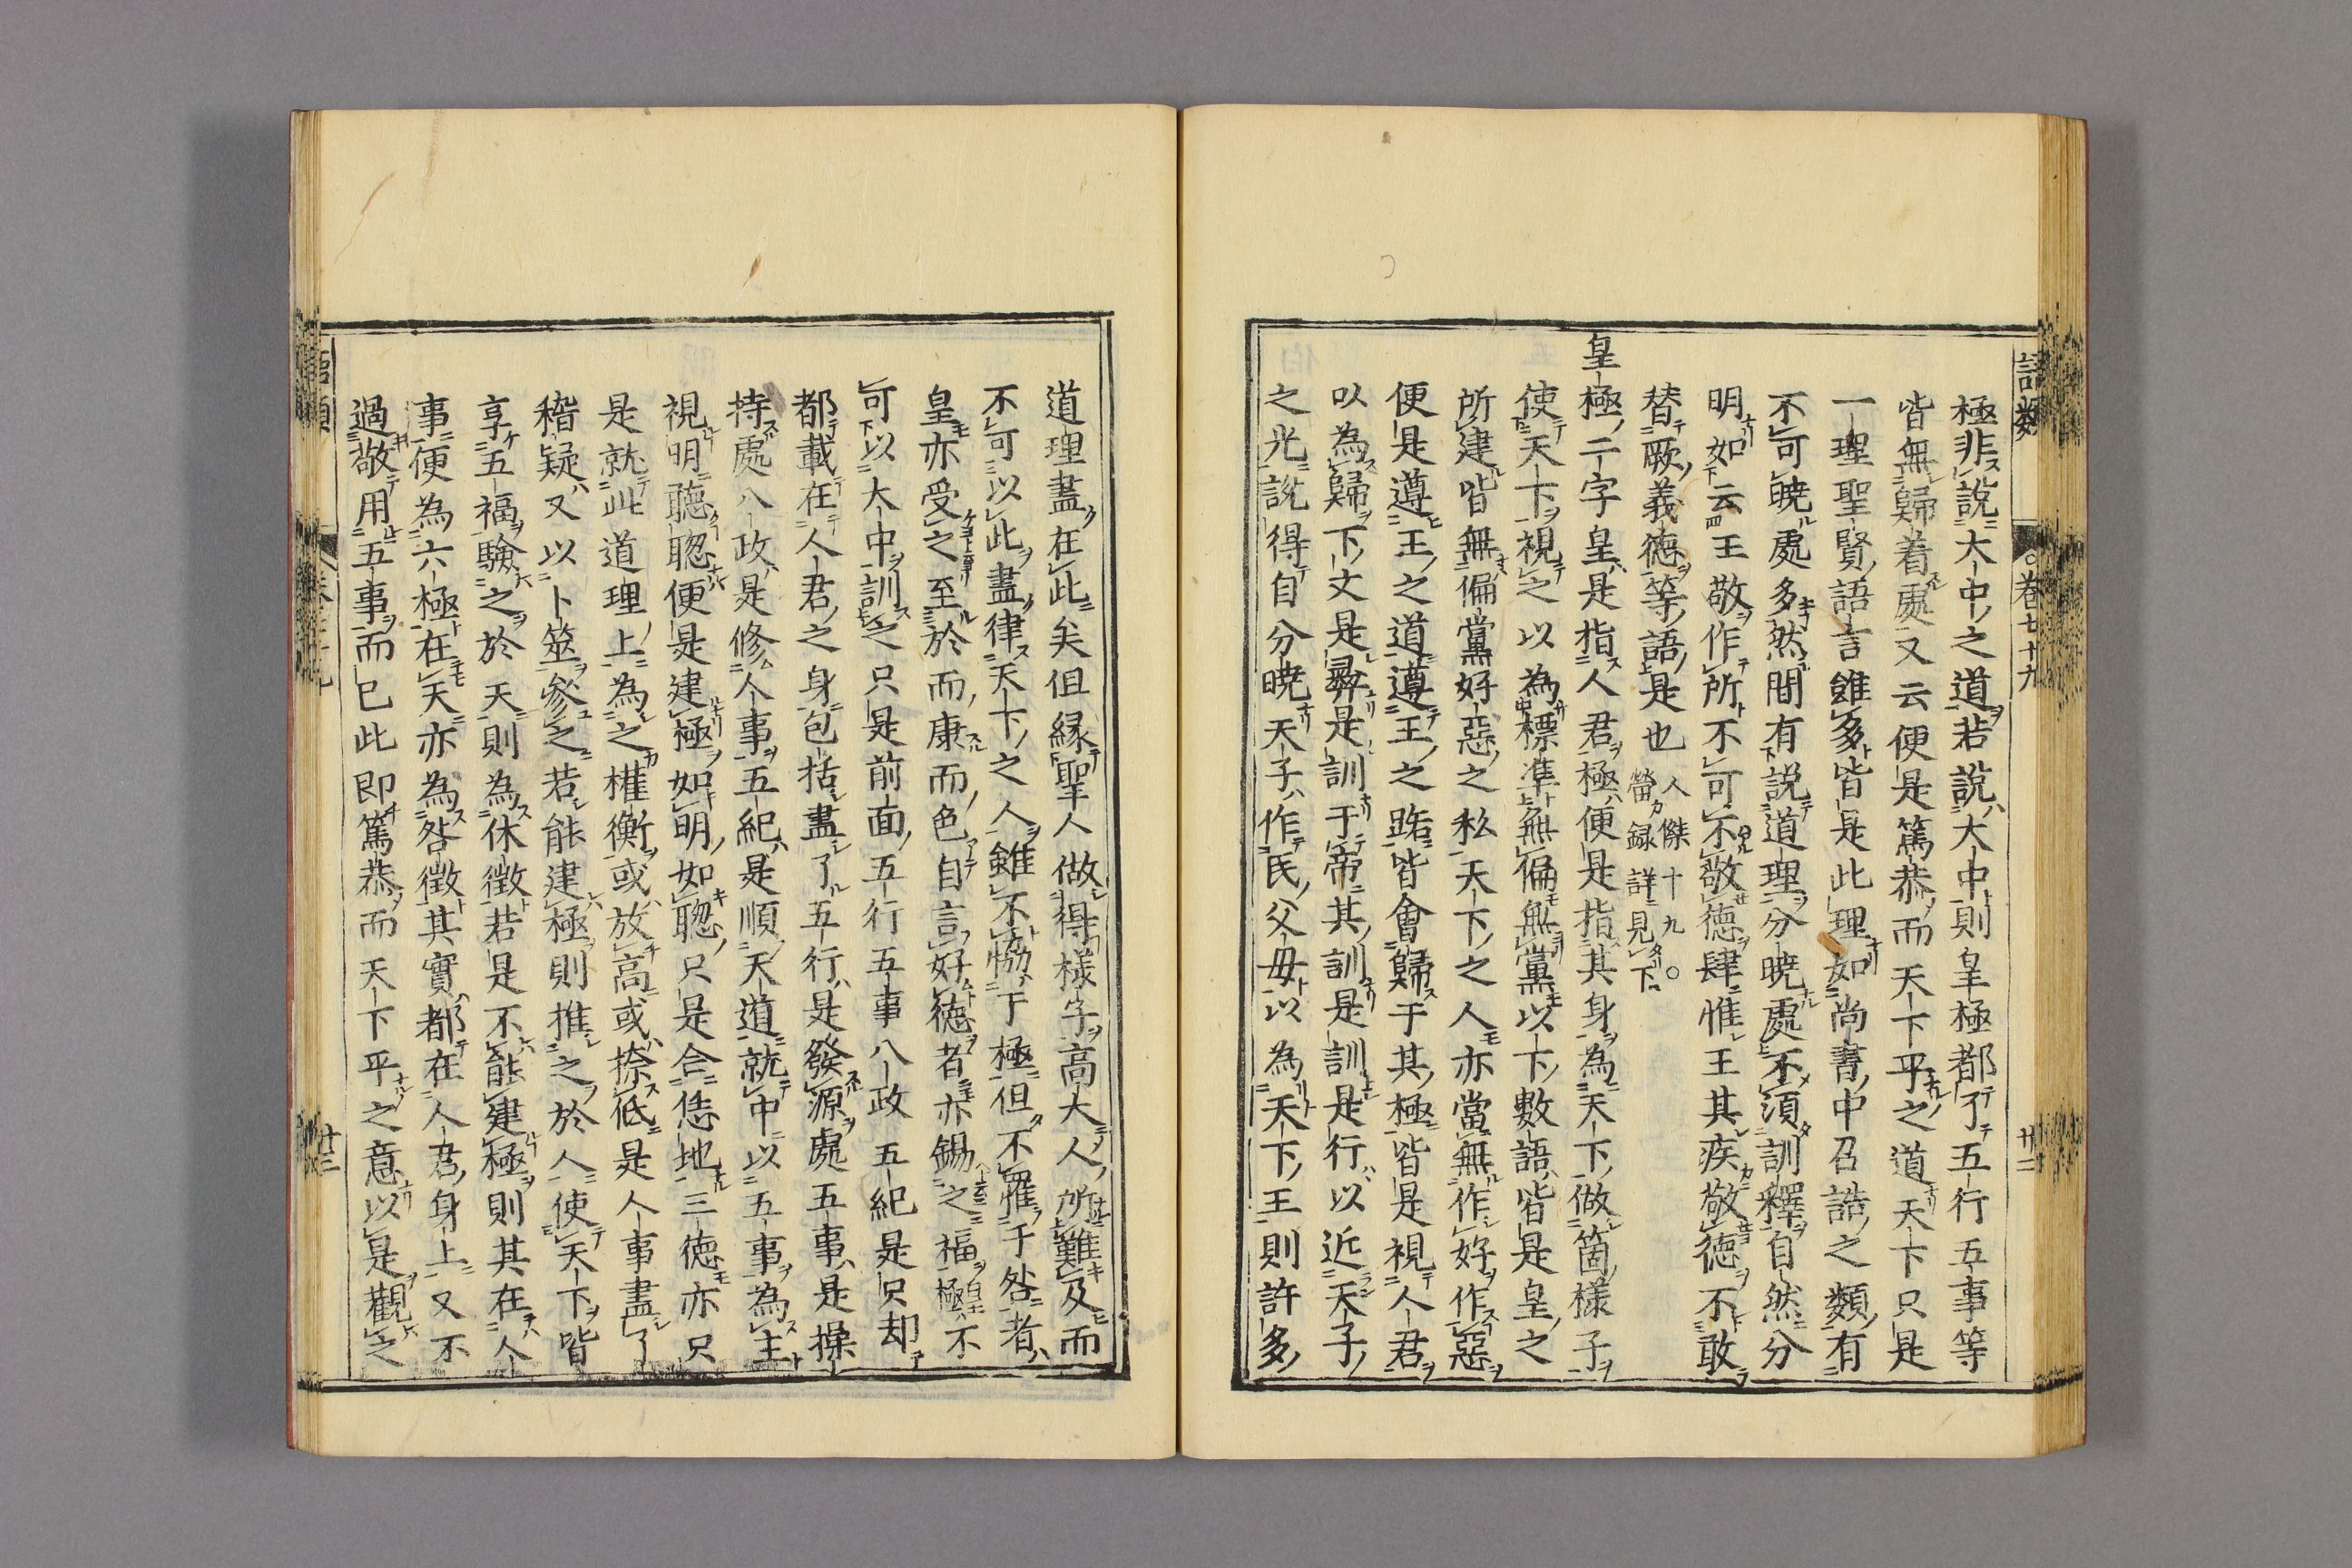 語類
卷七十九
廿二
極非說大中之道若說大中則皇極都了五行五事等
皆無歸着處又云便是篤恭而天下平之道天下只是
一理聖賢語言雖多皆是此理如尚書中召誥之類有
不可曉處多然間有說道理分曉處不須訓釋自然分
明如云王敬作所不可不敬德肆惟王其疾敬德不敢
替厥義德等語是也
人傑十九○
㽦錄詳見下
皇極二字皇是指人君極便是指其身為天下做箇樣子
使天下視之以為標準無偏無黨以下數語皆是皇之
所建皆無偏黨好惡之私天下之人亦當無作好作惡
便是遵王之道遵王之路皆會歸于其極皆是視人君
以為歸下文是彝是訓于帝其訓是訓是行以近天子
之光說得自分曉天子作民父母以為天下王則許多
道理盡在此矣但縁聖人做得樣子高大人所難及而
不可以此盡律天下之人雖不恊于極但不罹于咎者
皇亦受之至於而康而色自言好德者亦錫之福極不
皇
可以大中訓之只是前面五行五事八政五紀是只却
都載在人君之身包括盡了五行是發源處五事是操
持處八政是修人事五紀是順天道就中以五事為主
視明聽聰便是建極如明如聰只是合恁地三德亦只
是就此道理上為之權衡或放高或捺低是人事盡了
稽疑又以卜筮參之若能建極則推之於人使天下皆
享五福驗之於天則為休徵若是不能建極則其在人
事便為六極在天亦為咎徵其實都在人君身上又不
過敬用五事而已此即篤恭而天下平之意以是觀之
廿三